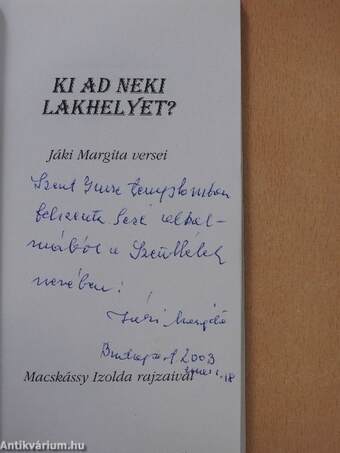 KI AD NEKI
LAKHELYET?
Jáki Margita versei
Szent Imre templomban
felszentelése alkal-
mából a Szentlélek
nevében!
Jáki Margita
Budapest 2003
Macskássy Izolda rajzaival
www.antikvarium.hu
Antikvárium.hu